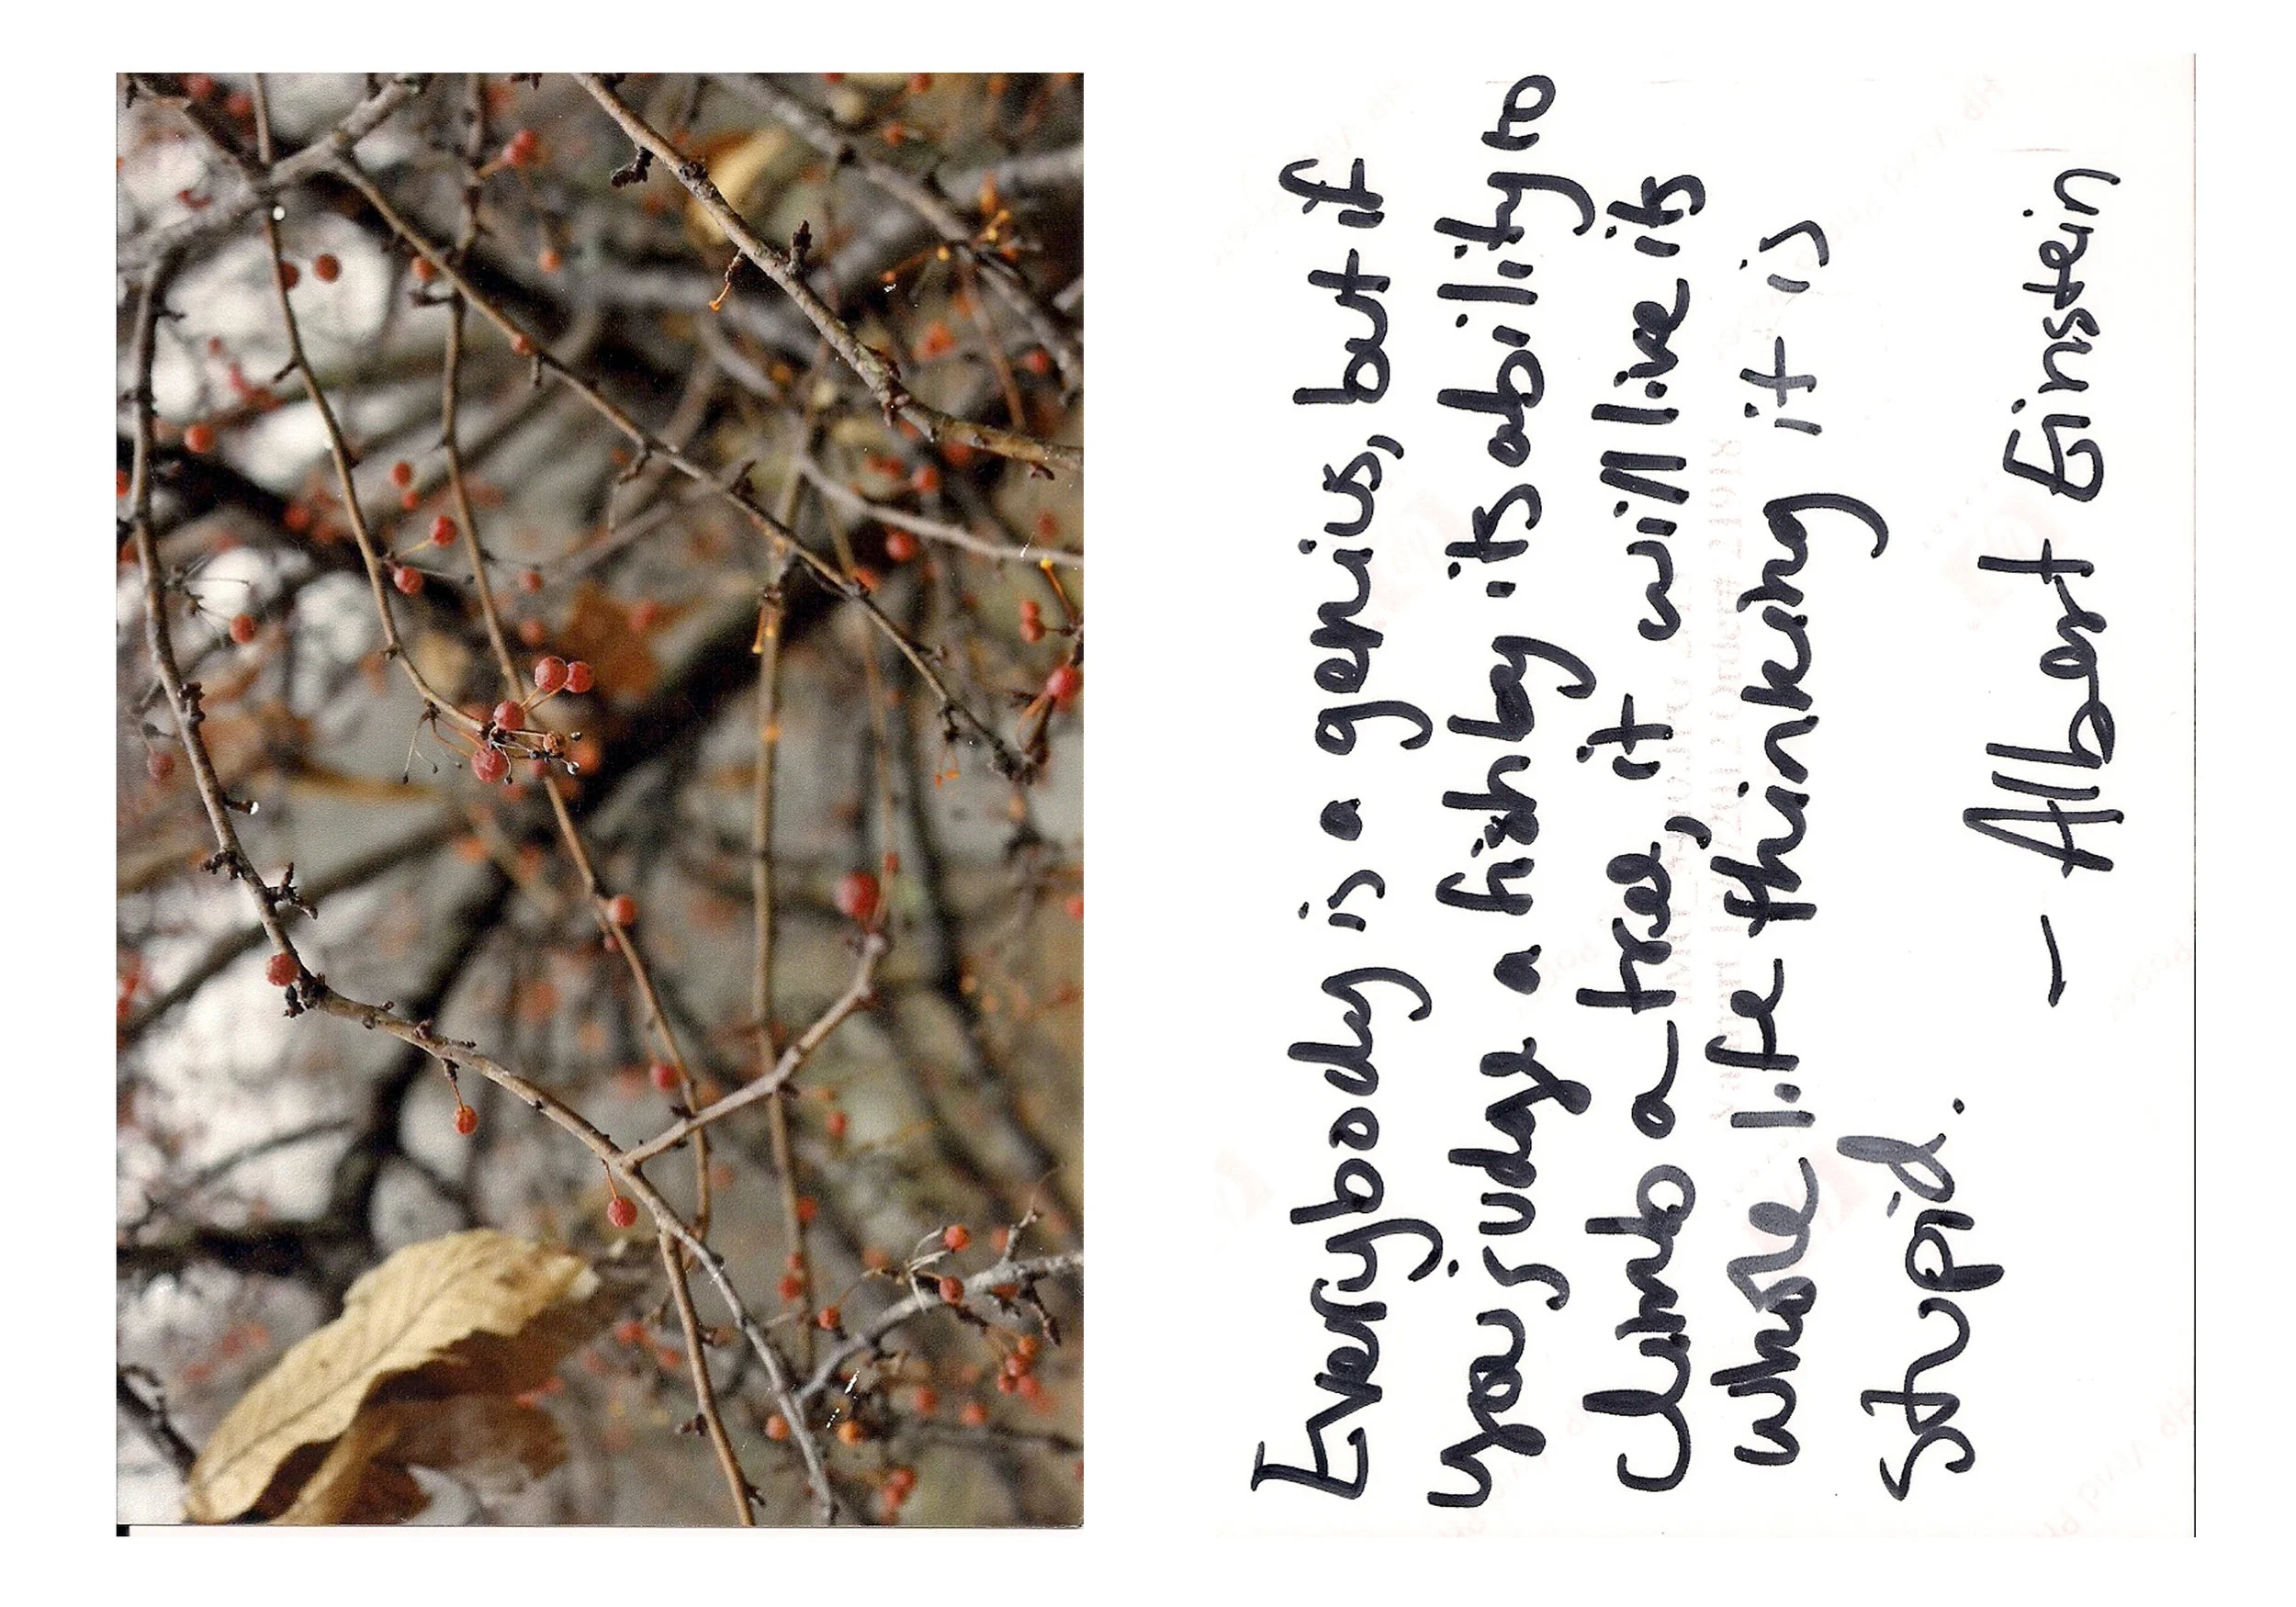 Everybody is a genius, but if
you judge a fish by its ability to
climb a tree, it will live its
whole life thinking it is
stupid.
— Albert Einstein